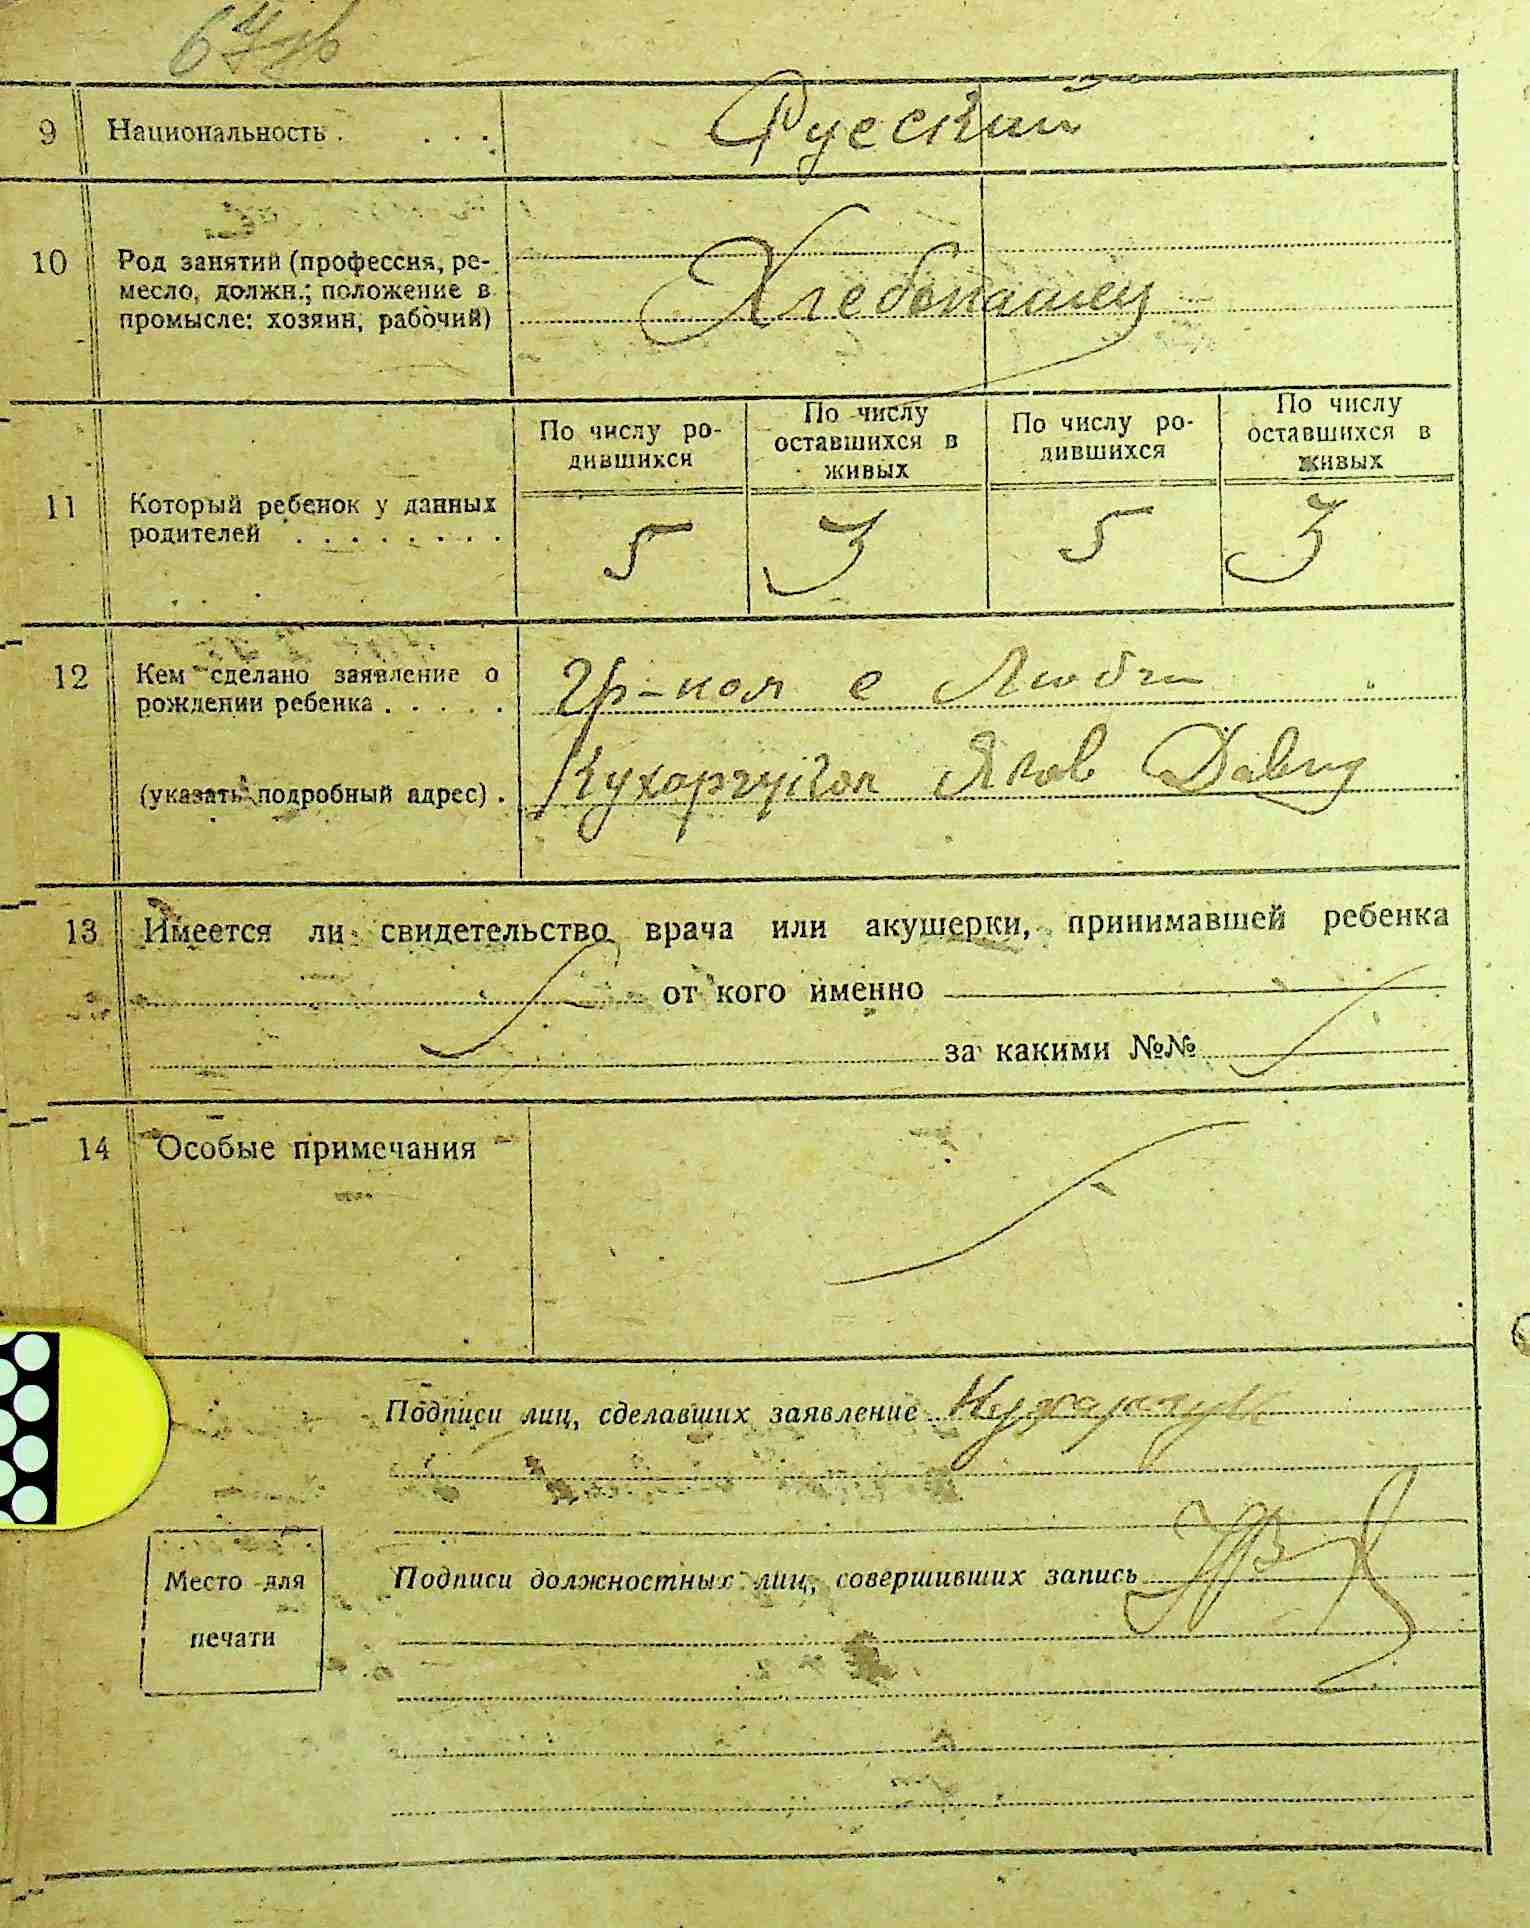 9 Национальность . . . . Русский
10 Род занятий (профессия, ре-
месло, должн.; положение в
промысле: хозяин, рабочий)
Хлебопашец
11 Который ребенок у данных
родителей . . . . . . . .
По числу ро-
дившихся
По числу
оставшихся в
живых
По числу ро-
дившихся
По числу
оставшихся в
живых
5 3 5 3
12 Кем сделано заявление о
рождении ребенка . . . . .
(указать подробный адрес) .
Гр-ком с
Яков Давид
13 Имеется ли свидетельство врача или акушерки, принимавшей ребенка
от кого именно
за какими №№
14 Особые примечания
Подписи лиц, сделавших заявление Кухарчук
Подписи должностных лиц, совершивших запись
Место для
печати